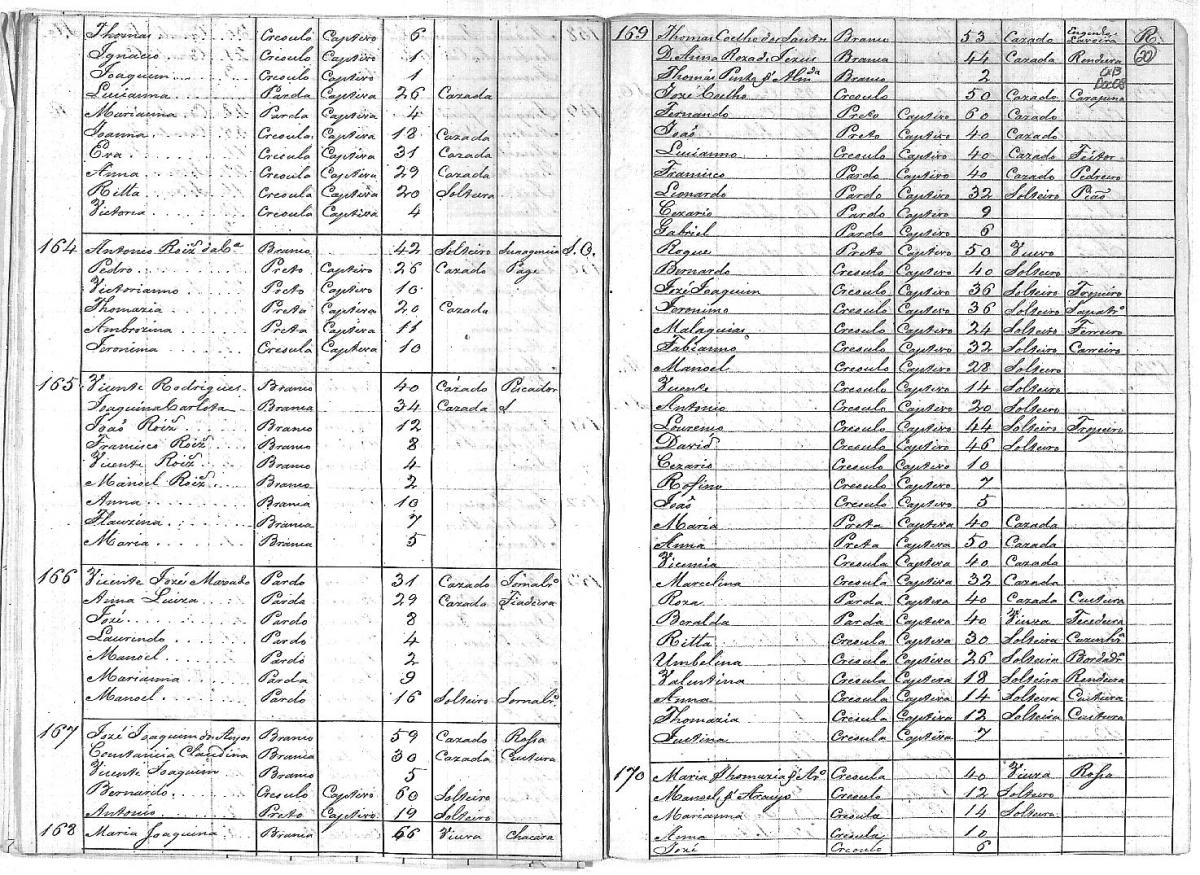 Thomas Creoulo Captivo 6
Ignacio Creoulo Captivo 1
Joaquim Creoulo Captivo 1
Luciana Parda Captiva 26 Cazada
Marianna Parda Captiva 4
Joanna Creoula Captiva 18 Cazada
Eva Creoula Captiva 31 Cazada
Anna Creoula Captiva 29 Cazada
Ritta Creoula Captiva 20 Solteira
Victoria Creoula Captiva 4
164 Antonio Roiz Branco 42 Solteiro S.O.
Pedro Preto Captivo 26 Cazado Page
Victorianno Preto Captivo 10
Thomazia Preta Captiva 20 Cazada
Ambrozina Preta Captiva 11
Jeronima Creoula Captiva 10
165 Vicente Rodrigues Branco 40 Cazado Pescador
Joaquina Carlota Branca 34 Cazada
João Roiz Branco 12
Francisco Roiz Branco 8
Vicente Roiz Branco 4
Manoel Roiz Branco 2
Anna Branca 10
Flauzina Branca 7
Maria Branca 5
166 Vicente Jozé Pardo 31 Cazado Jornalro
Anna Luiza Parda 29 Cazada Fiadeira
Jozé Pardo 8
Laurindo Pardo 4
Manoel Pardo 2
Marianna Parda 9
Manoel Pardo 16 Solteiro Jornalro
167 Jozé Joaquim dos Anjos Branco 59 Cazado Rossa
Constancia Claudina Branca 30 Cazada Custura
Vicente Joaquim Branco 5
Bernardo Creoulo Captivo 60 Solteiro
Antonio Preto Captivo 19 Solteiro
168 Maria Joaquina Branca 66 Viuva Chacara
169 Thomas Coelho dos Santos Branco 53 Cazado R.
D. Anna Roza de Jezus Branca 44 Cazada Rendeira 20
Thomas Pinto d'Almda Branco 2
Jozé Coelho Creoulo 50 Cazado Carapina
Fernando Preto Captivo 60 Cazado
João Preto Captivo 40 Cazado
Lucianno Creoulo Captivo 40 Cazado Feitor
Francisco Pardo Captivo 40 Cazado Pedreiro
Leonardo Pardo Captivo 32 Solteiro Pião
Cezario Pardo Captivo 9
Gabriel Pardo Captivo 6
Roque Preto Captivo 50 Viuvo
Bernardo Creoulo Captivo 40 Solteiro
Jozé Joaquim Creoulo Captivo 36 Solteiro
Jeronimo Creoulo Captivo 36 Solteiro Sapatro
Malaquias Creoulo Captivo 24 Solteiro Ferreiro
Fabianno Creoulo Captivo 32 Solteiro Carreiro
Manoel Creoulo Captivo 28 Solteiro
Vicente Creoulo Captivo 14 Solteiro
Antonio Creoulo Captivo 20 Solteiro
Lourenço Creoulo Captivo 44 Solteiro
David Creoulo Captivo 46 Solteiro
Cezario Creoulo Captivo 10
Rofino Creoulo Captivo 7
João Creoulo Captivo 5
Maria Preta Captiva 40 Cazada
Anna Preta Captiva 50 Cazada
Vicencia Creoula Captiva 40 Cazada
Marcelina Creoula Captiva 32 Cazada
Roza Parda Captiva 40 Cazada Custura
Beralda Parda Captiva 40 Viuva Tecedeira
Ritta Creoula Captiva 30 Solteira Cozinhra
Umbelina Creoula Captiva 26 Solteira Bordadra
Valentina Creoula Captiva 18 Solteira Rendeira
Anna Creoula Captiva 14 Solteira Custura
Thomazia Creoula Captiva 12 Solteira Custura
Justina Creoula Captiva 7
170 Maria Thomazia Creoula 40 Viuva Rossa
Manoel d'Araujo Creoulo 12 Solteiro
Marianna Creoula 14 Solteira
Anna Creoula 10
Jozé Creoulo 6